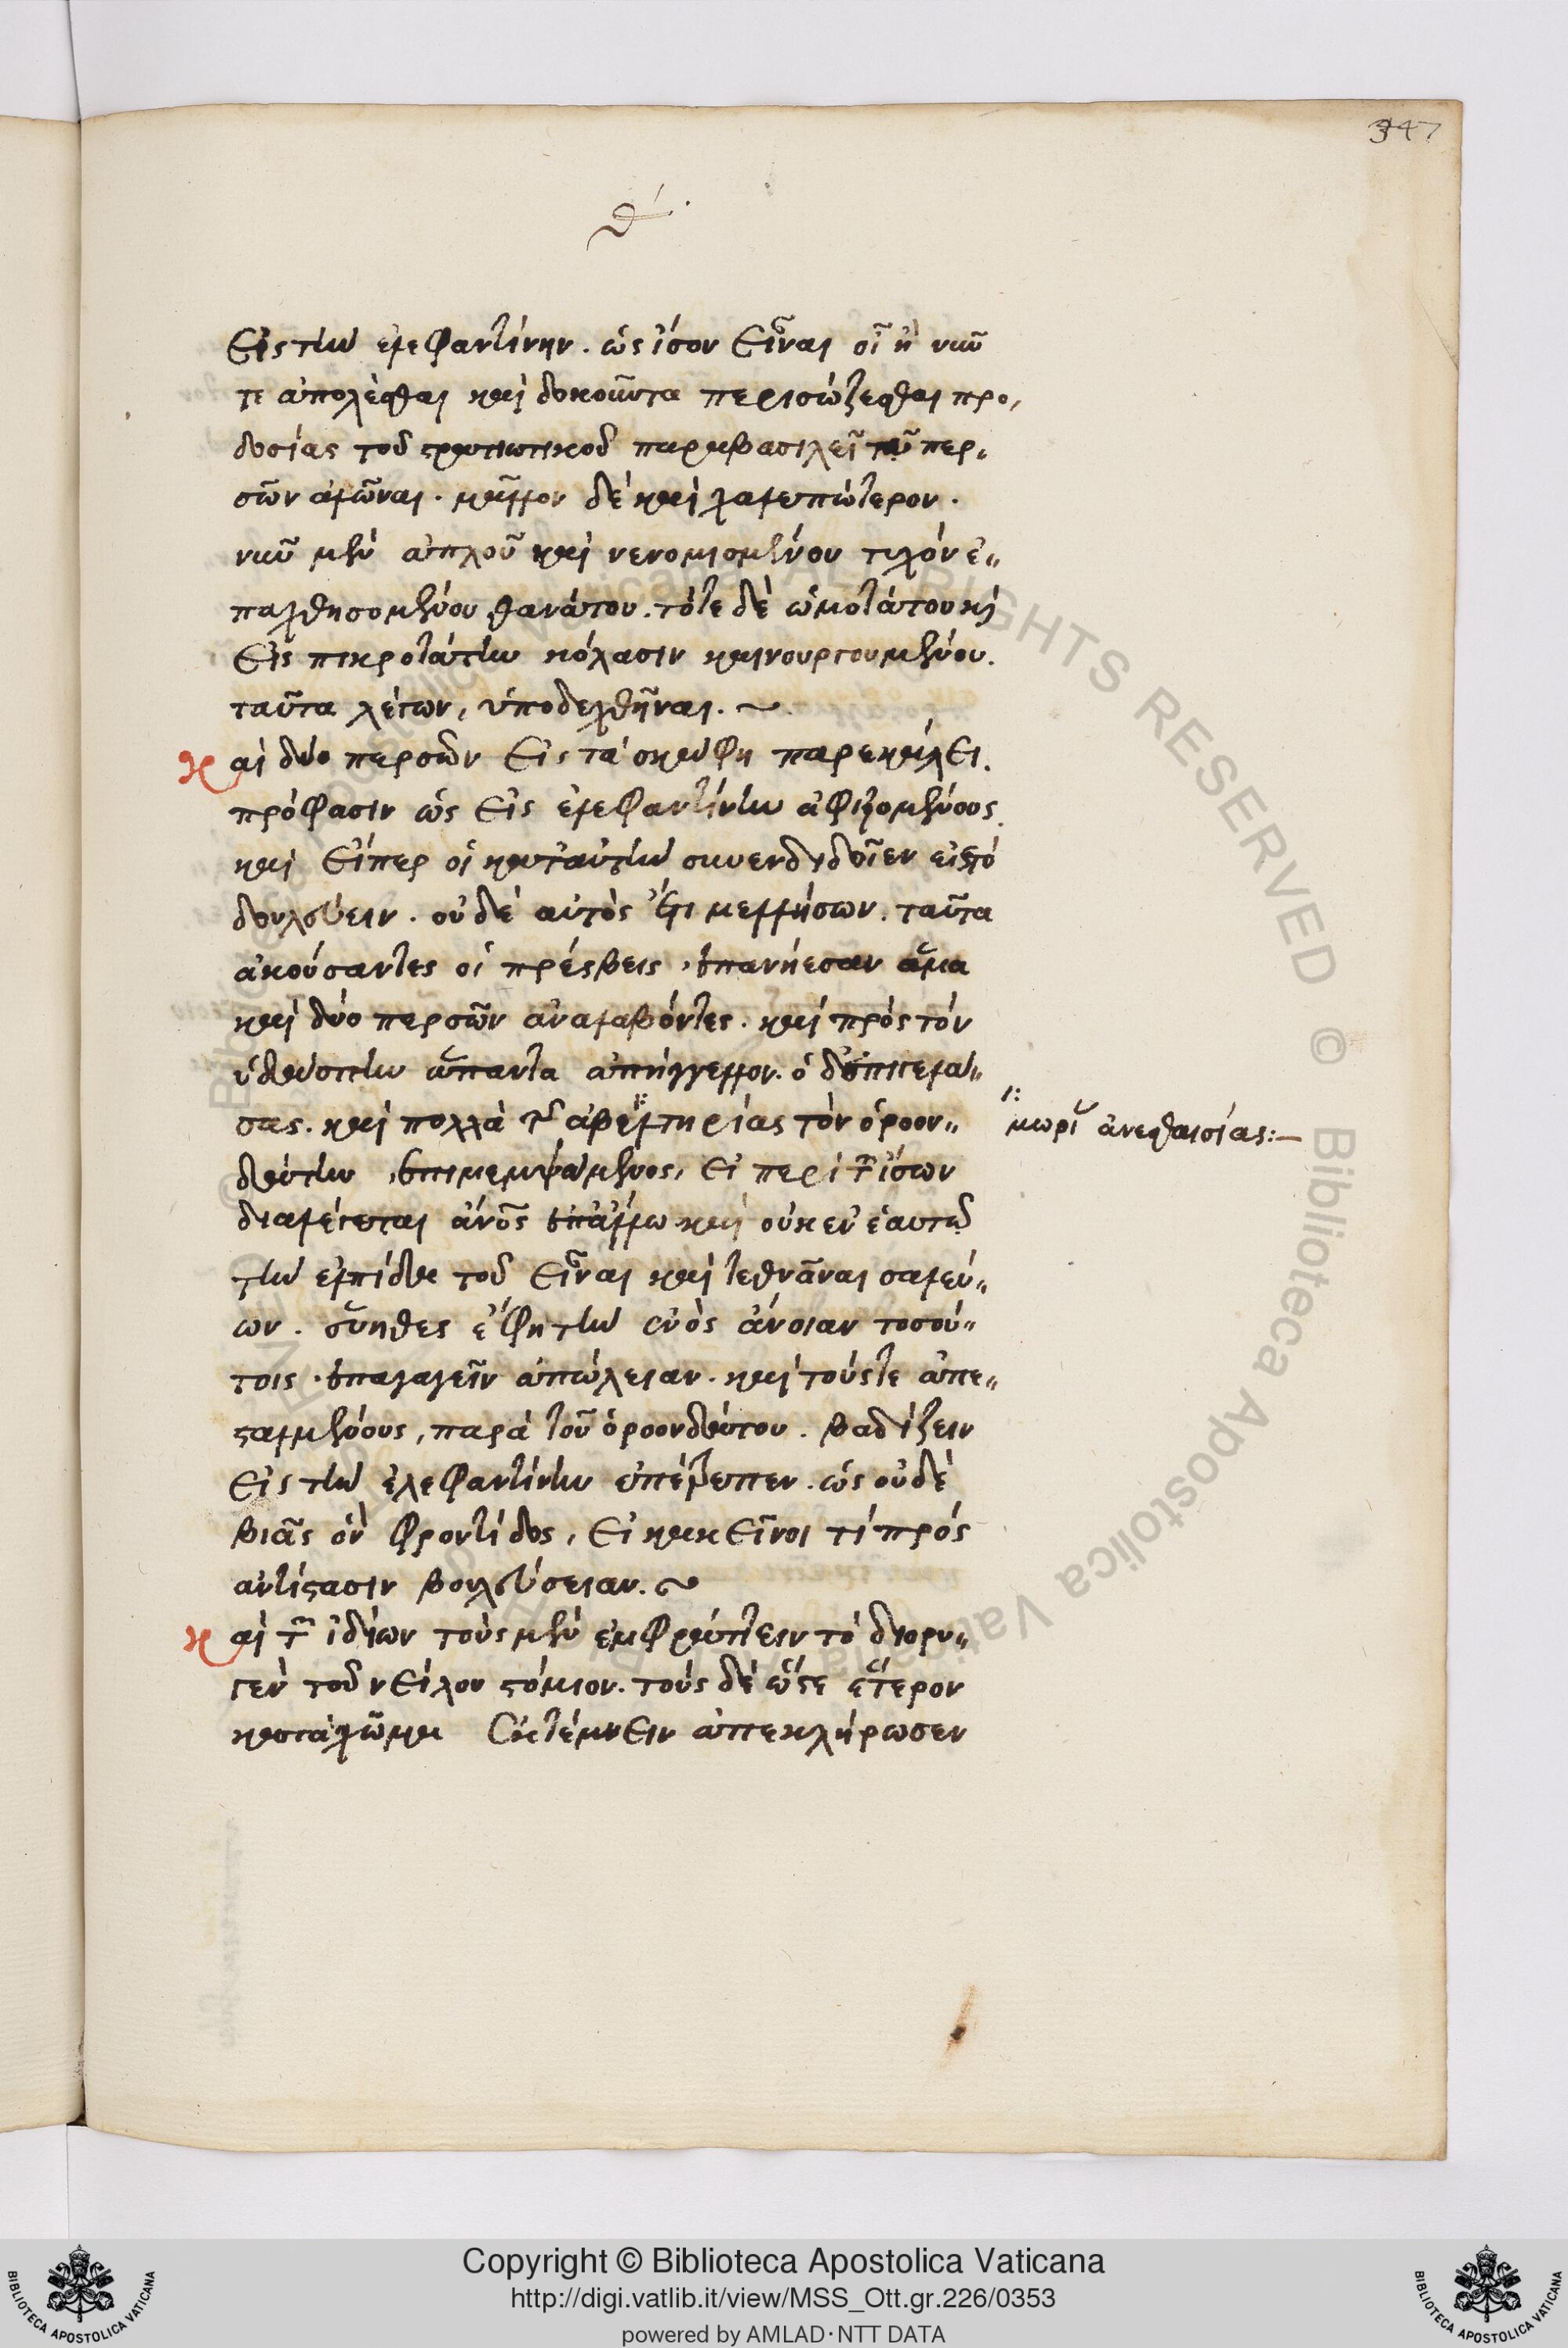 347
θ΄.
εἰς τὴν ἐλεφαντίνην. ὡς ἴσον εἶναι οἷ ἢ νῦν
τι ἀπολέσθαι καὶ δοκοῦντα περισώζεσθαι προ,
δοσίας τοῦ στρατιωτικοῦ παρὰ βασιλεῖ τῶν περ,,
σῶν ἁλῶναι. μᾶλλον δὲ καὶ χαλεπώτερον.
νῦν μὲν ἁπλοῦ καὶ νενομισμένου τυχὸν ἐ,,
παχθησομένου θανάτου. τότε δὲ ὠμοτάτου κὶ
εἰς πικροτάτην κόλασιν καινουργουμένου.
ταῦτα λέγων, ὑποδεχθῆναι. ~
καὶ δύο περσῶν εἰς τὰ σκάφη παρεκάλει.
πρόφασιν ὡς εἰς ἐλεφαντίνην ἀφιξομένους.
καὶ εἴπερ οἱ κατ' αὐτὴν συνενδιδοῖεν εἰς τὸ
δουλεύειν. οὐδὲ αὐτὸς ἔτι μελλήσων. ταῦτα
ἀκούσαντες οἱ πρέσβεις, ἐπανήεσαν ἅμα
καὶ δύο περσῶν ἀναλαβόντες. καὶ πρὸς τὸν
ὑδάσπην ἅπαντα ἀπήγγελλον. ὁ δ' ἐπιγελά,,
σας. καὶ πολλὰ τῆς ἀβελτηρίας τὸν ὀροον,,
δάτην, ἐπιμεμψάμενος, εἰ περὶ τῶν ἴσων
διαλέγεται ἄνος ἐπ' ἄλλω καὶ οὐκ ἐν ἑαυτῶ
τὴν ἐλπίδα τοῦ εἶναι καὶ τεθνᾶναι σαλεύ,,
ων. εὔηθες ἔφη τὴν ἑνὸς ἄνοιαν τοσού,,
τοις. ἐπαγαγεῖν ἀπώλειαν. καὶ τούς τε ἀπε,,
σταλμένους, παρὰ τοῦ ὀροονδάτου. βαδίζειν
εἰς τὴν ἐλεφαντίνην ἐπέτρεπεν. ὡς οὐδὲ
βιᾶς ὂν φροντίδος, εἰ κακεῖνοι τί πρὸς
ἀντίστασιν βουλεύσειαν. ~
καὶ τῶν ἰδίων τοὺς μὲν ἐμφράττειν τὸ διορυ,,
γὲν τοῦ νείλου στόμιον. τοὺς δὲ ὥστε ἕτερον
κατὰ χῶμα ἐκτέμνειν ἀπεκλήρωσεν
μωρίας ἀνεσθαισίας:—
Copyright © Biblioteca Apostolica Vaticana
http://digi.vatlib.it/view/MSS_Ott.gr.226/0353
powered by AMLAD·NTT DATA